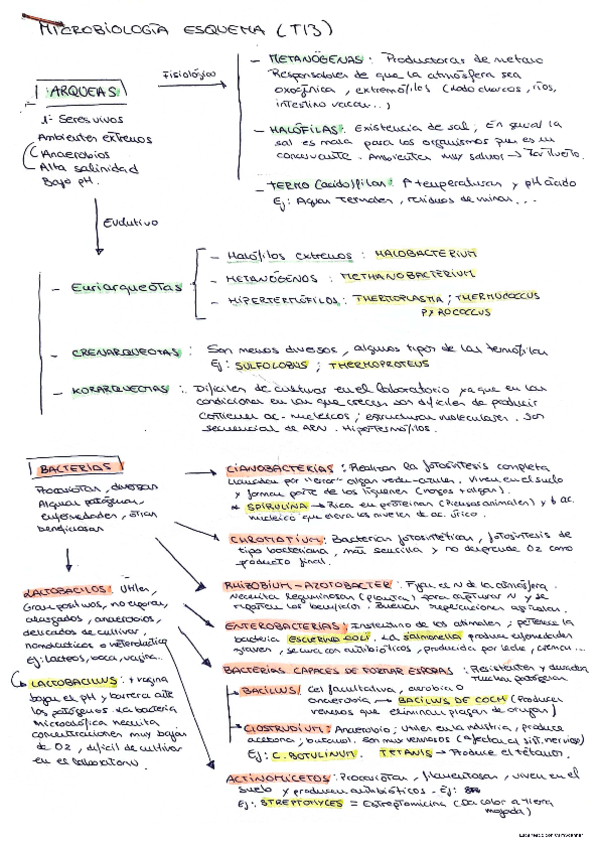 MICROBIOLOGÍA ESQUEMA (T13)
ARQUEAS
Fisiológico
1º Seres vivos
Ambientes extremos
Anaerobios
Alta salinidad
Bajo pH.
- METANÓGENAS: Productoras de metano
Responsables de que la atmósfera sea
oxogénica, extremófilas (lodo charcos, ríos,
intestino vacas...)
- HALÓFILAS: Existencia de sal, En general la
sal es mala para los organismos pues es un
conservante. Ambientes muy salinos →
- TERMO (acido)filas: ↑ temperaturas y pH ácido
Ej: Aguas Termales, residuos de minas...
Evolutivo
- Euriarqueotas
- Halófilos extremos: HALOBACTERIUM
- METANÓGENOS: METHANOBACTERIUM
- HIPERTERMÓFILOS: THERMOPLASMA; THERMOCOCCUS
PYROCOCCUS
- CRENARQUEOTAS: Son menos diversos, algunos tipos de las termófilas
Ej: SULFOLOBUS; THERMOPROTEUS
- KORARQUEOTAS: Difíciles de cultivar en el laboratorio ya que en las
condiciones en las que crecen son difíciles de producir
contienen ac. nucleicos; estructuras moleculares. Son
secuencias de ARN. Hipertermófilos.
BACTERIAS
Procariotas, diversas
Algunas patógenas,
enfermedades, otras
beneficiosas
CIANOBACTERIAS: Realizan la fotosíntesis completa
llamadas por "error" algas verde-azules. Viven en el suelo
y forman parte de los líquenes (hongos + algas).
* SPIRULINA → Rica en proteínas (Piensos animales) y ac.
nucleico que eleva los niveles de ac. úrico.
CHROMATIUM: Bacterias fotosintéticas, fotosíntesis de
tipo bacteriana, más sencilla y no desprende O2 como
producto final.
RHIZOBIUM - AZOTOBACTER: Fijan el N de la atmósfera.
Necesita leguminosas (planta) para capturar N y se
reparten los beneficios. Buenas repercusiones agrícolas.
ENTEROBACTERIAS: Intestino de los animales; pertenece la
bacteria ESCHERICHIA COLI. La Salmonella produce enfermedades
graves, se cura con antibióticos, producida por leche, cremas...
BACTERIAS CAPACES DE FORMAR ESPORAS: Resistentes y duraderas
muchas patógenas
BACILLUS: Cel facultativa, aerobia o
anaerobia → BACILLUS DE (Produce
venenos que eliminan plagas de orugas)
CLOSTRIDIUM: Anaerobio; Útiles en la industria, produce
acetona, butanol. Son muy venenosos (afectan al sist. nervioso)
Ej: C. BOTULINUM. TETANIS → Produce el tétanos.
ACTINOMICETOS: Procariotas, filamentosas, viven en el
suelo y producen antibióticos.
Ej: STREPTOMYCES = Estreptomicina (Da color a tierra
mojada)
LACTOBACILOS: Útiles,
Gram positivos, no esporas,
alargados, anaerobios,
delicados de cultivar,
homoláctica o heteroláctica
ej: lácteos, boca, vagina...
LACTOBACILLUS: + vagina
bajan el pH y barrera ante
los patógenos. La bacteria
microaerófila necesita
concentraciones muy bajas
de O2, difícil de cultivar
en el laboratorio.